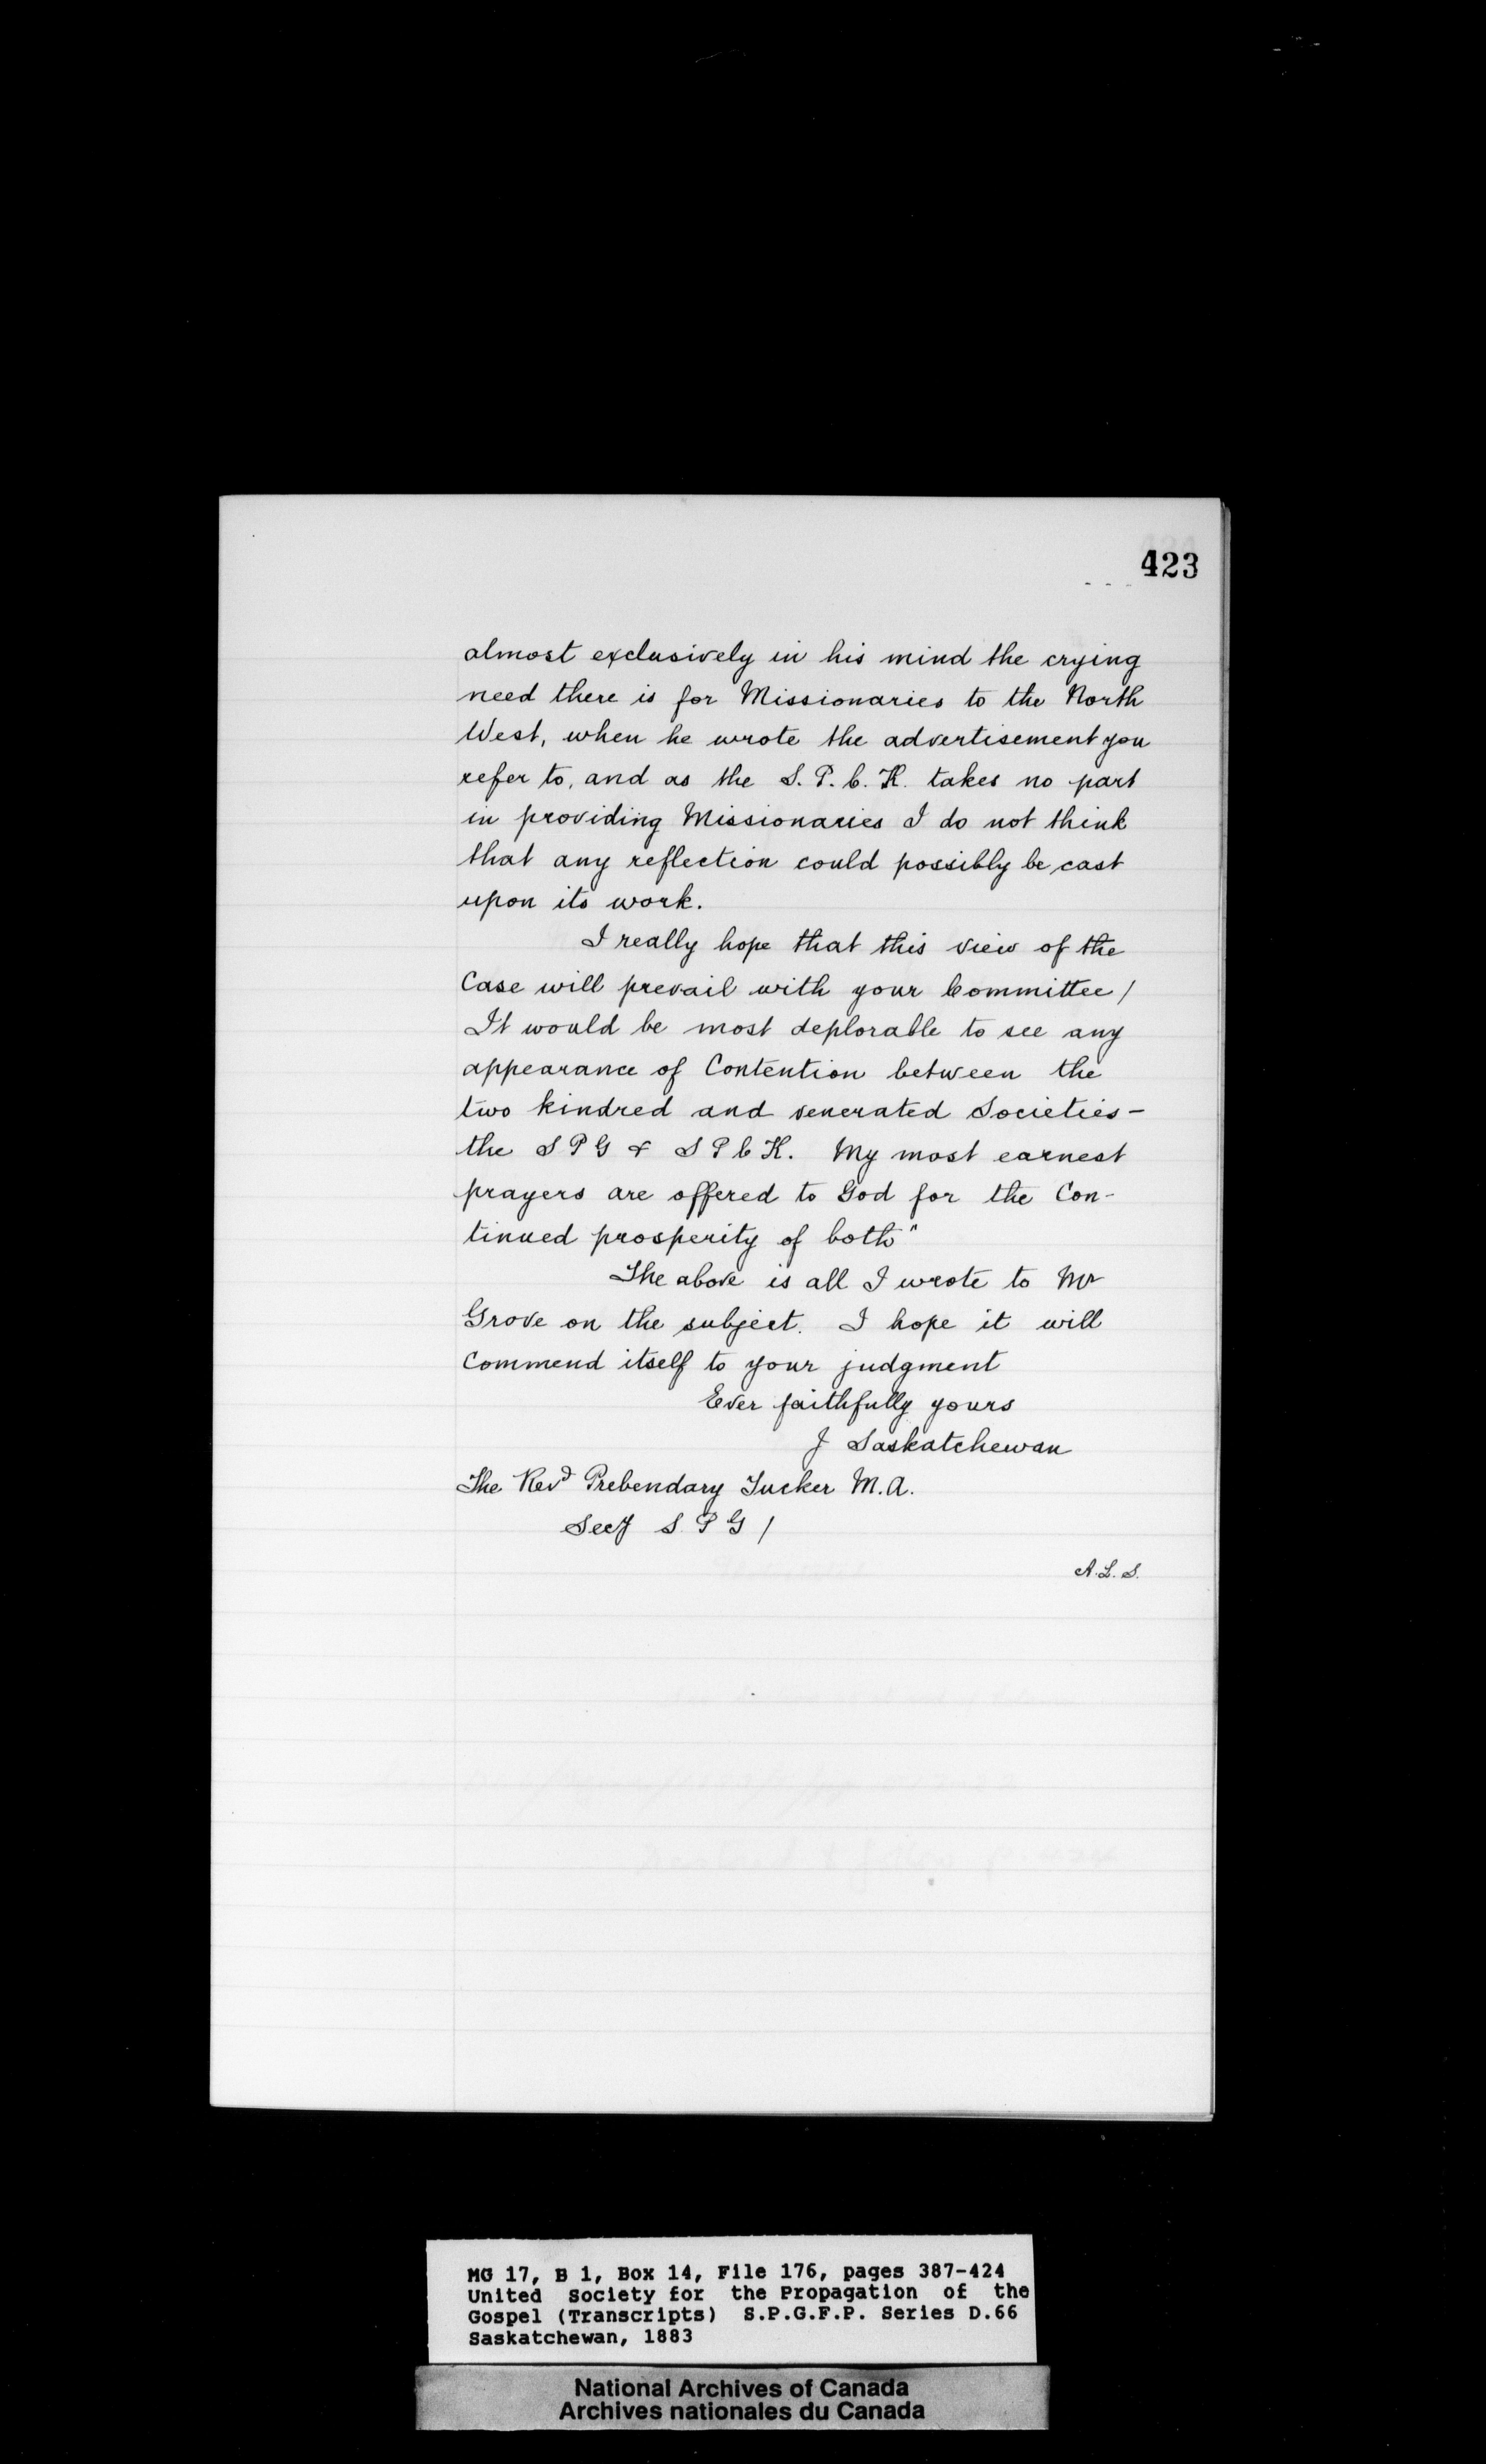 423
almost exclusively in his mind the crying
need there is for Missionaries to the North
West, when he wrote the advertisement you
refer to, and as the S. P. C. K. takes no part
in providing Missionaries I do not think
that any reflection could possibly be cast
upon its work.
I really hope that this view of the
Case will prevail with your Committee/
It would be most deplorable to see any
appearance of Contention between the
two kindred and venerated Societies-
the S P G & S P C K. My most earnest
prayers are offered to God for the Con-
tinued prosperity of both"
The above is all I wrote to Mr
Grove on the subject. I hope it will
Commend itself to your judgment
Ever faithfully yours
J Saskatchewan
The Revd Prebendary Tucker M.A.
Secy S. P G /
A.L.S.
MG 17, B 1, Box 14, File 176, pages 387-424
United Society for the Propagation of the
Gospel (Transcripts) S.P.G.F.P. Series D.66
Saskatchewan, 1883
National Archives of Canada
Archives nationales du Canada